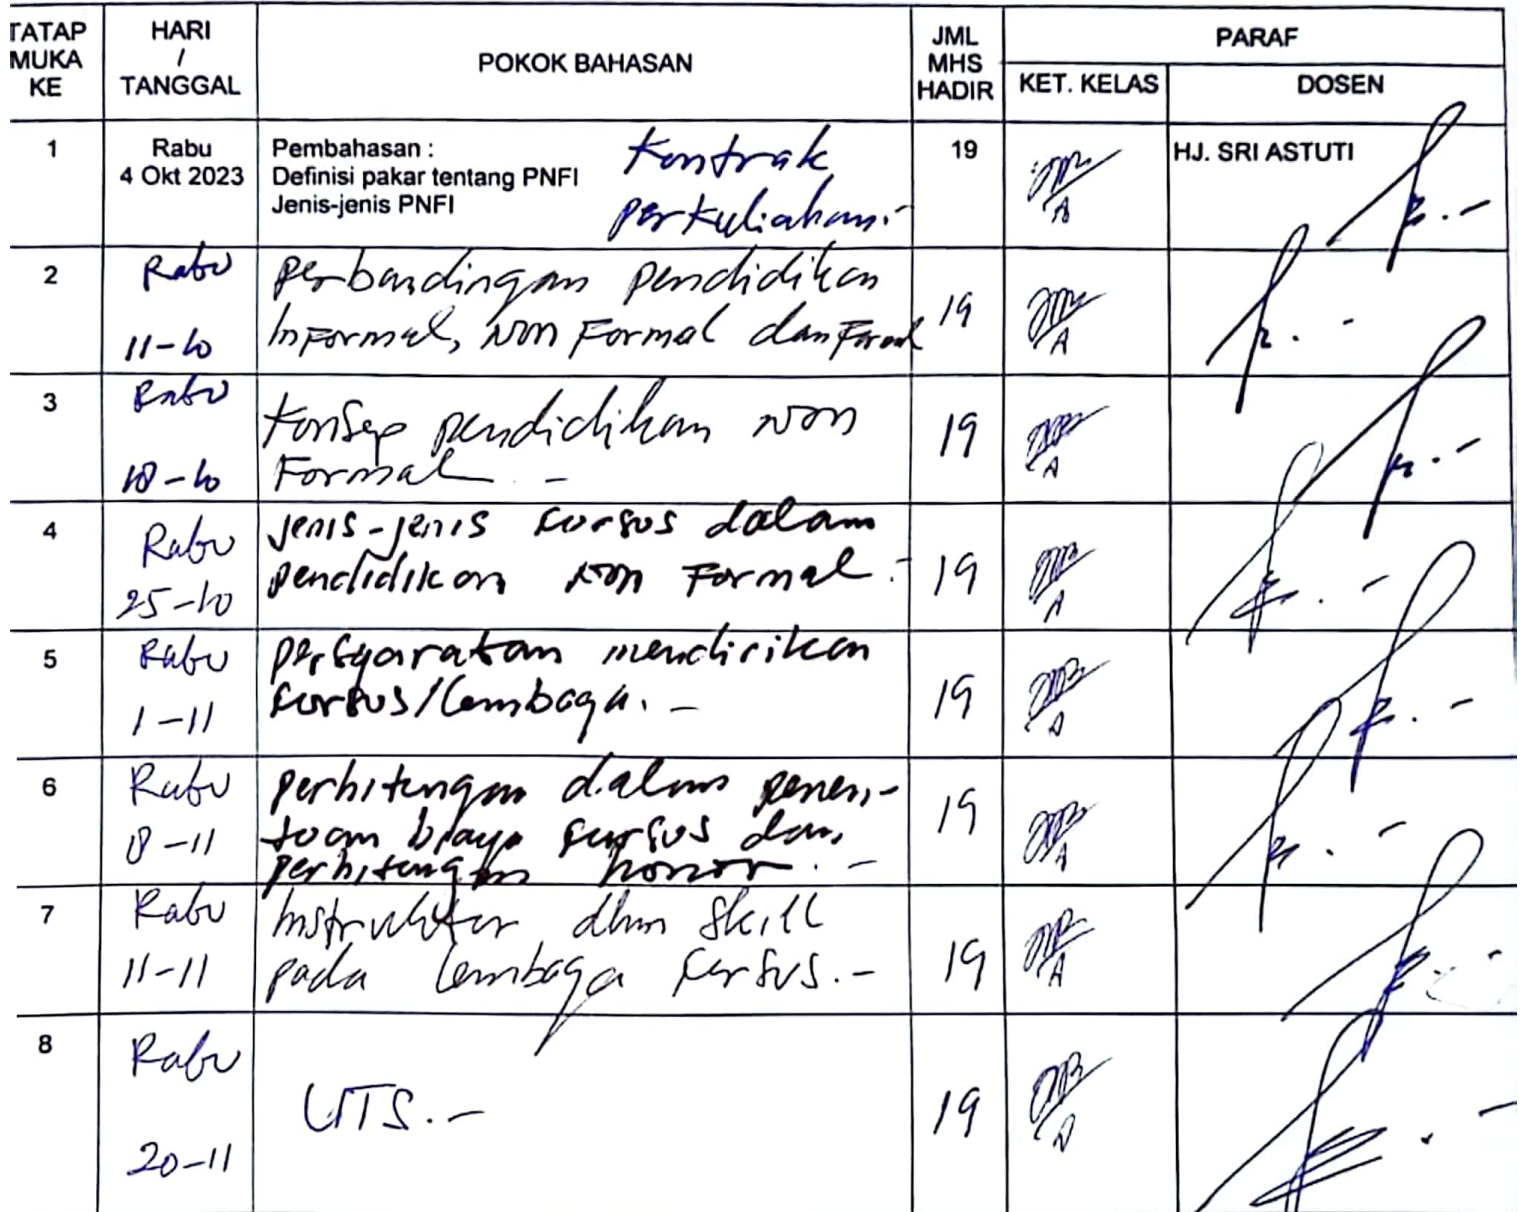 TATAP MUKA KE
HARI / TANGGAL
POKOK BAHASAN
JML MHS HADIR
PARAF
KET. KELAS
DOSEN
1
Rabu
4 Okt 2023
Pembahasan :
Definisi pakar tentang PNFI
Jenis-jenis PNFI
Kontrak
perkuliahan.-
19
HJ. SRI ASTUTI
2
Rabu
11-10
perbandingan pendidikan
InFormal, Non Formal dan Formal
19
3
Rabu
18-10
Konsep pendidikan Non
Formal. -
19
4
Rabu
25-10
jenis-jenis kursus dalam
pendidikan Non Formal.-
19
5
Rabu
1-11
persyaratan mendirikan
kursus/lembaga. -
19
6
Rabu
8-11
perhitungan dalam penen-
tuan biaya kursus dan
perhitungan honor. -
19
7
Rabu
11-11
Instruktur dlm Skill
pada lembaga kursus.-
19
8
Rabu
20-11
UTS.-
19